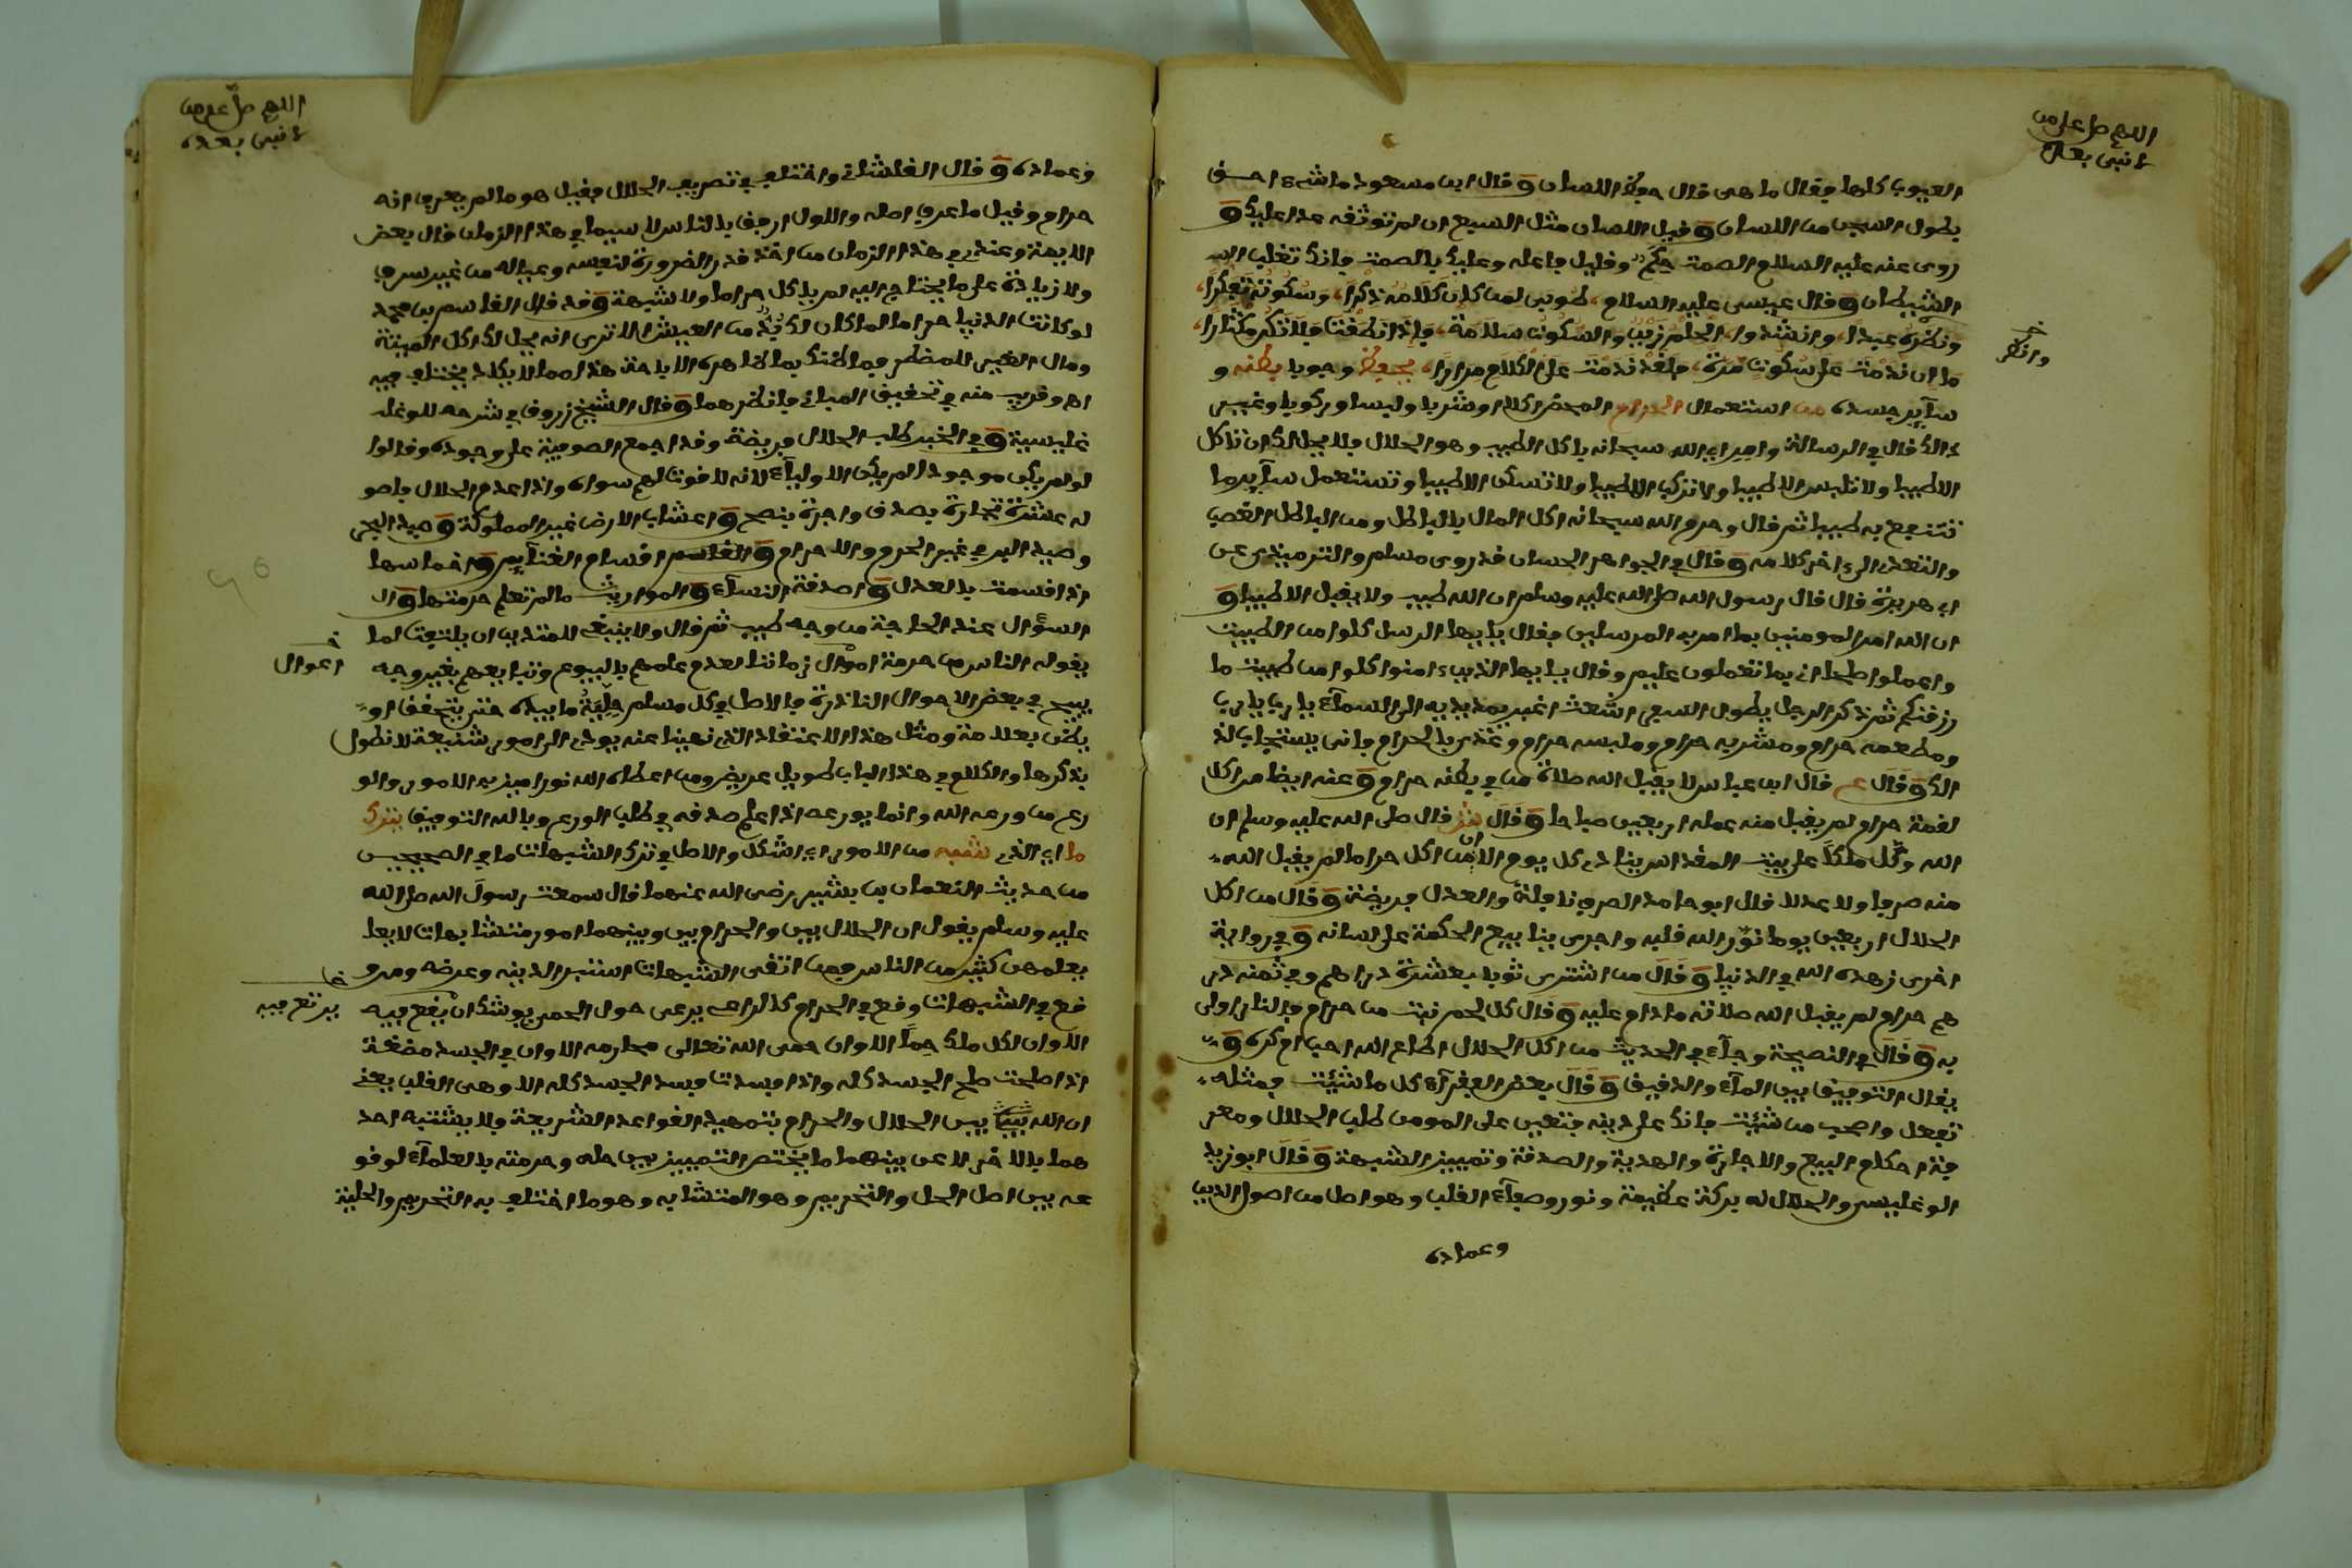 اللهم صل على من
لا نبي بعده
العيوب كلها فقال ما هي قال حفظ اللسان وقال ابن مسعود ما شيء احق
بطول السجن من اللسان وقيل اللسان مثل السبع ان لم توثقه عدا عليك و
روي عنه عليه السلام الصمت حكم وقليل فاعله وعليك بالصمت فانك تغلب به
الشيطان وقال عيسى عليه السلام طوبى لمن كان كلامه ذكرا وسكوته تفكرا
ونظره عبرا وانشدوا الحلم زين والسكوت سلامة فاذا نطقت فلا تكن مكثارا
ما ان ندمت على سكوت مرة فلقد ندمت على الكلام مرارا يحفظ وجوبا بطنه و
سآير جسده من استعمال الحرام المحض اكلا او شربا ولبسا وركوبا وغير
ذالك قال في الرسالة وامر الله سبحانه باكل الطيب وهو الحلال فلا يحل لك ان تاكل
الا طيبا ولا تلبس الا طيبا ولا تركب الا طيبا ولا تسكن الا طيبا وتستعمل سآير ما
تنتفع به طيبا ثم قال وحرم الله سبحانه اكل المال بالباطل ومن الباطل الغصب
والتعدى الى اخر كلامه وقال في الجواهر الحسان قد روى مسلم والترمذي عن
ابي هريرة قال قال رسول الله صلى الله عليه وسلم ان الله طيب ولا يقبل الا طيبا و
ان الله امر المومنين بما امر به المرسلين فقال يايها الرسل كلوا من الطيبت
واعملوا صلحا اني بما تعملون عليم وقال يايها الذين ءامنوا كلوا من طيبت ما
رزقنكم ثم ذكر الرجل يطول السفر اشعث اغبر يمد يديه الى السمآء يا رب يا رب
ومطعمه حرام ومشربه حرام وملبسه حرام وغذي بالحرام فانى يستجاب لذ
الك وقال عم قال ابن عباس لا يقبل الله صلاة من في بطنه حرام وعنه ايضا من اكل
لقمة حرام لم يقبل منه عمله اربعين صباحا وقال قال صلى الله عليه وسلم ان
الله وكل ملكا على بيت المقدس ينادى كل يوم الا من اكل حراما لم يقبل الله
منه صرفا ولا عدلا قال ابو حامد الصرف نافلة والعدل فريضة وقال من اكل
الحلال اربعين يوما نور الله قلبه واجرى ينابيع الحكمة على لسانه وفي رواية
اخرى زهده الله في الدنيا وقال من اشترى ثوبا بعشرة دراهم وفي ثمنه در
هم حرام لم يقبل الله صلاته ما دام عليه وقال كل لحم نبت من حرام فالنار اولى
به وقال في النصيحة وجآء في الحديث من اكل الحلال اطاع الله احب ام كره و
يقال التوفيق بين المآء والدقيق وقال بعض الفقرآء كل ما شئت فمثله
تفعل واصحب من شئت فانك على دينه فتعين على المومن طلب الحلال ومعر
فة احكام البيع والاجارة والهدية والصدقة وتمييز الشبهة وقال ابو زيد
الوغليس والحلال له بركة عظيمة ونور وصفآء القلب وهو اصل من اصول الدين
وعماده
خ
وانظر
اللهم صل على من
لا نبي بعده
وعماده وقال القلشاني واختلف في تعريف الحلال فقيل هو ما لم يعرف انه
حرام وقيل ما عرف اصله والاول ارفق بالناس لا سيما في هذا الزمان قال بعض
الايمة وعندي في هذا الزمان من اخذ قدر الضرورة لنفسه وعياله من غير سرف
ولا زيادة على ما يحتاج اليه لم ياكل حراما ولا شبهة وقد قال القاسم بن محمد
لو كانت الدنيا حراما لما كان لك بد من العيش الا ترى انه يحل لك اكل الميتة
ومال الغير للمضطر فيما ظنك بما ظاهره الاباحة هذا مما لا يكاد يختلف فيه
اه وقريب منه في تحقيق المباني فانظرهما وقال الشيخ زروق في شرحه للوغلـ
غليسية وفي الخبر طلب الحلال فريضة وقد اجمع الصوفية على وجوده وقالوا
لو لم يكن موجودا لم يكن الاوليآء لانه لا قوت لهم سواه واذا عدم الحلال فاصو
له عشرة تجارة بصدق واجرة بنصح واعشاب الارض غير المملوكة وصيد البحر
وصيد البر في غير الحرم والاحرام والقاسم اقسام الغنآيم واخماسها
اذا قسمت بالعدل واصدقة النسآء والمواريث ما لم تعلم حرمتها والـ
السؤال عند الحاجة من وجه طيب ثم قال ولا ينبغي للمتدين ان يلتفت لما
يقوله الناس من حرمة اموال زماننا لعدم علمهم بالبيوع وتبايعهم بغير وجه
يبيح في بعض الاحوال النادرة فالاصل في كل مسلم حلية ما بيده حتى يتحقق او
يظن بعلامة ومثل هذا الاعتقاد الذي نهينا عنه يودي الى امور شنيعة لا نطول
بذكرها والكلام في هذا الباب طويل عريض ومن اعطاه الله نورا ميز به الامور والو
رع من ورعه الله وانما يورعه اذا علم صدقه في طلب الورع وبالله التوفيق بترك
ما اي الذي شبه من الامور اي اشكل والاصل في ترك الشبهات ما في الصحيحين
من حديث النعمان بن بشير رضي الله عنهما قال سمعت رسول الله صلى الله
عليه وسلم يقول ان الحلال بين والحرام بين وبينهما امور متشابهات لا يعا
يعلمهن كثير من الناس فمن اتقى الشبهات استبرا لدينه وعرضه ومن و
قع في الشبهات وقع في الحرام كالراعي يرعى حول الحمى يوشك ان يقع فيه
الا وان لكل ملك حما الا وان حمى الله تعالى محارمه الا وان في الجسد مضغة
اذا صلحت صلح الجسد كله واذا فسدت فسد الجسد كله الا وهي القلب يعني
ان الله بين الحلال والحرام بتمهيد القواعد الشريعة ولا يشتبه احد
هما بالاخر لا عن بينهما ما يختص التمييز بين حله وحرمته بالعلمآء لوقو
عه بين اصل الحل والتحريم وهو المتشابه وهو ما اختلف به التحريم والحلية
خ
احوال
خ
يرتع فيه